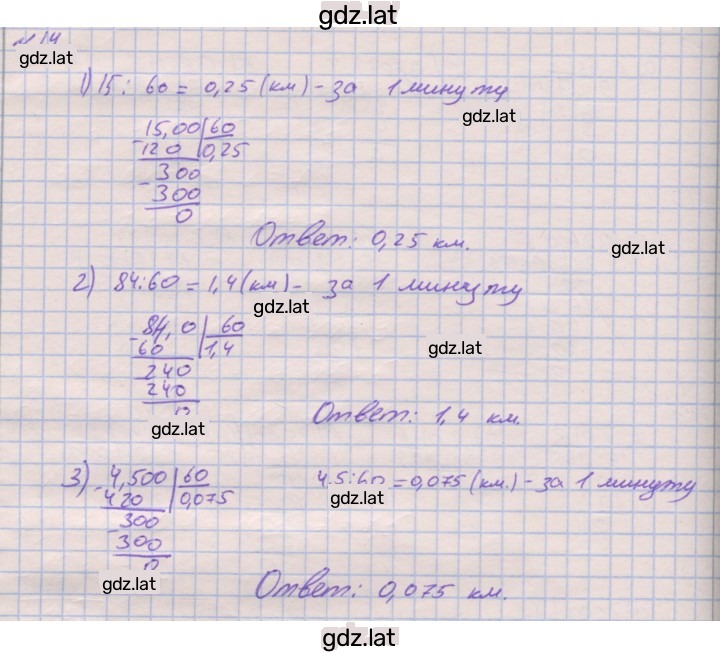 gdz.lat
№ 14
gdz.lat
1) 15 : 60 = 0,25 (км) - за 1 минуту
gdz.lat
15,00 60
- 120 0,25
300
- 300
0
Ответ: 0,25 км.
gdz.lat
2) 84:60 = 1,4 (км) - за 1 минуту
gdz.lat
- 84,0 60
60 1,4
gdz.lat
- 240
240
0
Ответ: 1,4 км.
gdz.lat
3) - 4,500 60
420 0,075
4.5:60 = 0,075 (км.) - за 1 минуту
gdz.lat
- 300
300
0
gdz.lat
Ответ: 0,075 км.
gdz.lat